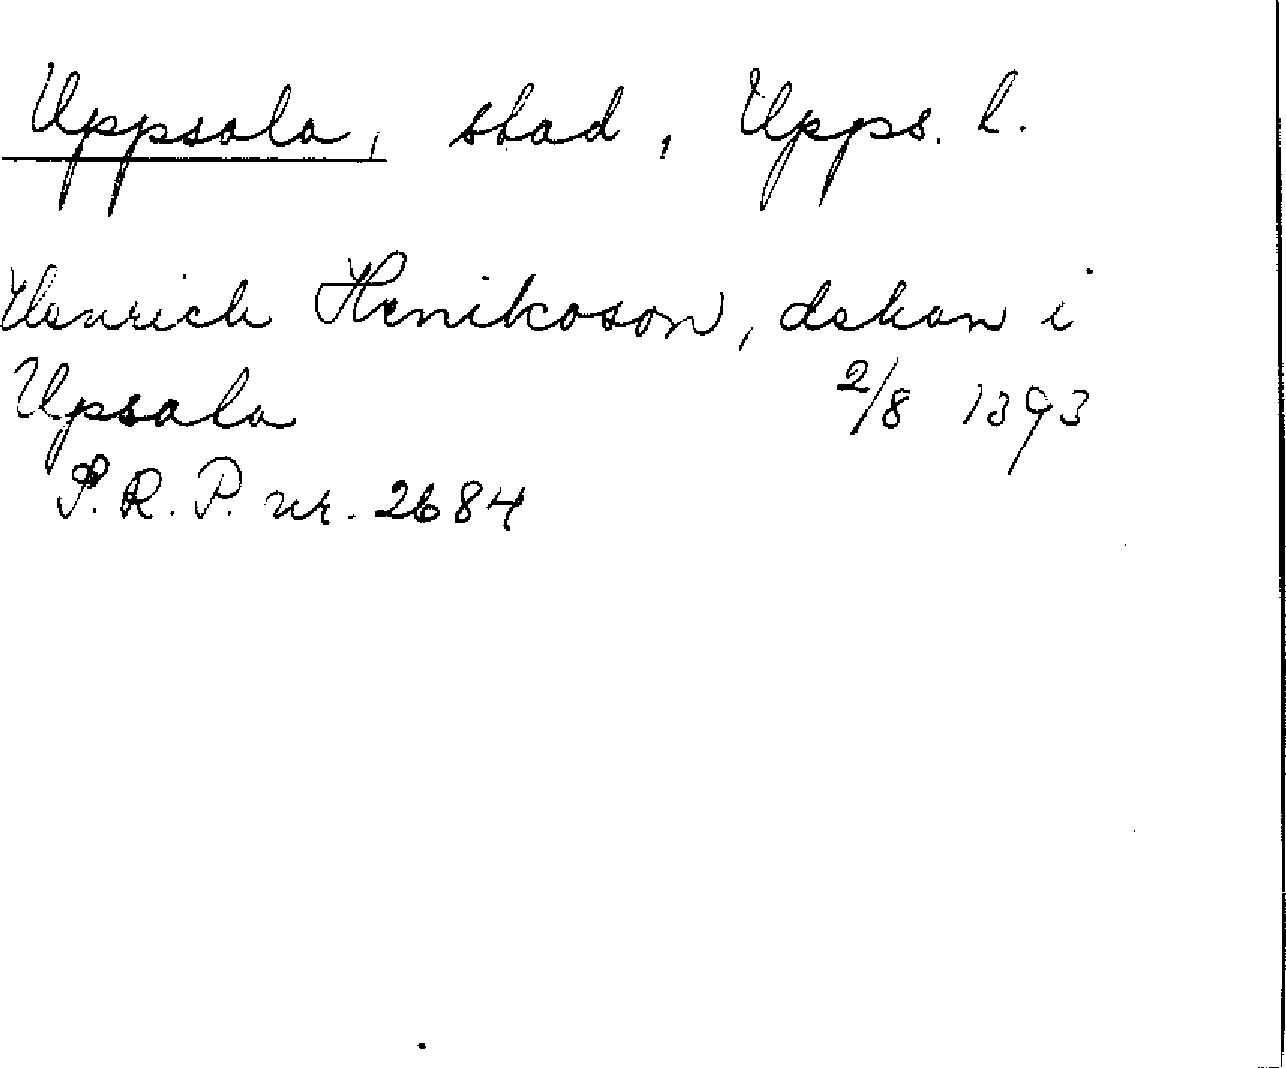 Uppsala, stad, Upps. l.
Henrich Henikoson, dekan i
Upsala 2/8 1393
S.R.P. nr. 2684